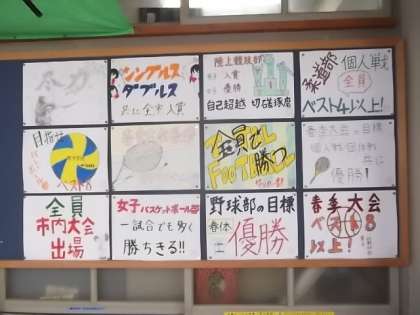 尽力
シングルス
ダブルス
共に全京入賞
陸上競技部
入賞
優勝
自己超越 切磋琢磨
柔道部
個人戦
全員
ベスト4以上!
目指せ
ベスト8
全員で
FOOTBALL
勝つ
春季大会の目標
個人戦団体戦
共に
優勝!
全員
市内大会
出場
女子バスケットボール部
一試合でも多く
勝ちきる!!
野球部の目標
春体
優勝
春季大会
ベスト8
以上!